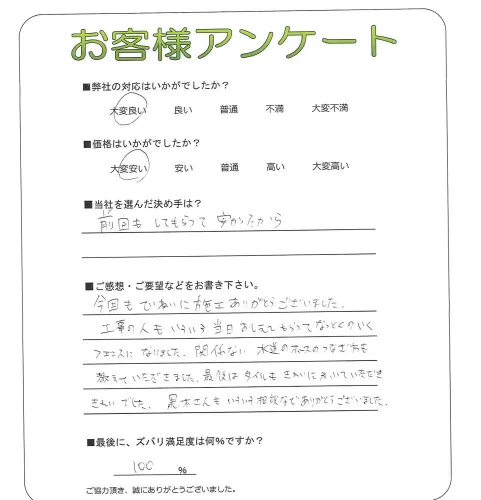 お客様アンケート
■弊社の対応はいかがでしたか?
大変良い 良い 普通 不満 大変不満
■価格はいかがでしたか?
大変安い 安い 普通 高い 大変高い
■当社を選んだ決め手は?
前回も してもらって 安かったから
■ご感想・ご要望などをお書き下さい。
今回も ていねいに施工ありがとうございました。
工事の人も いろいろ当日 おしえてもらって なっとくのいく
フェンスに なりました。関係ない 水道のホースのつなぎ方も
教えていただきました。最後は タイルも きれいに ふいていただき
きれいでした。 黒木さんも いろいろ相談など ありがとうございました。
■最後に、ズバリ満足度は何%ですか?
100 %
ご協力頂き、誠にありがとうございました。